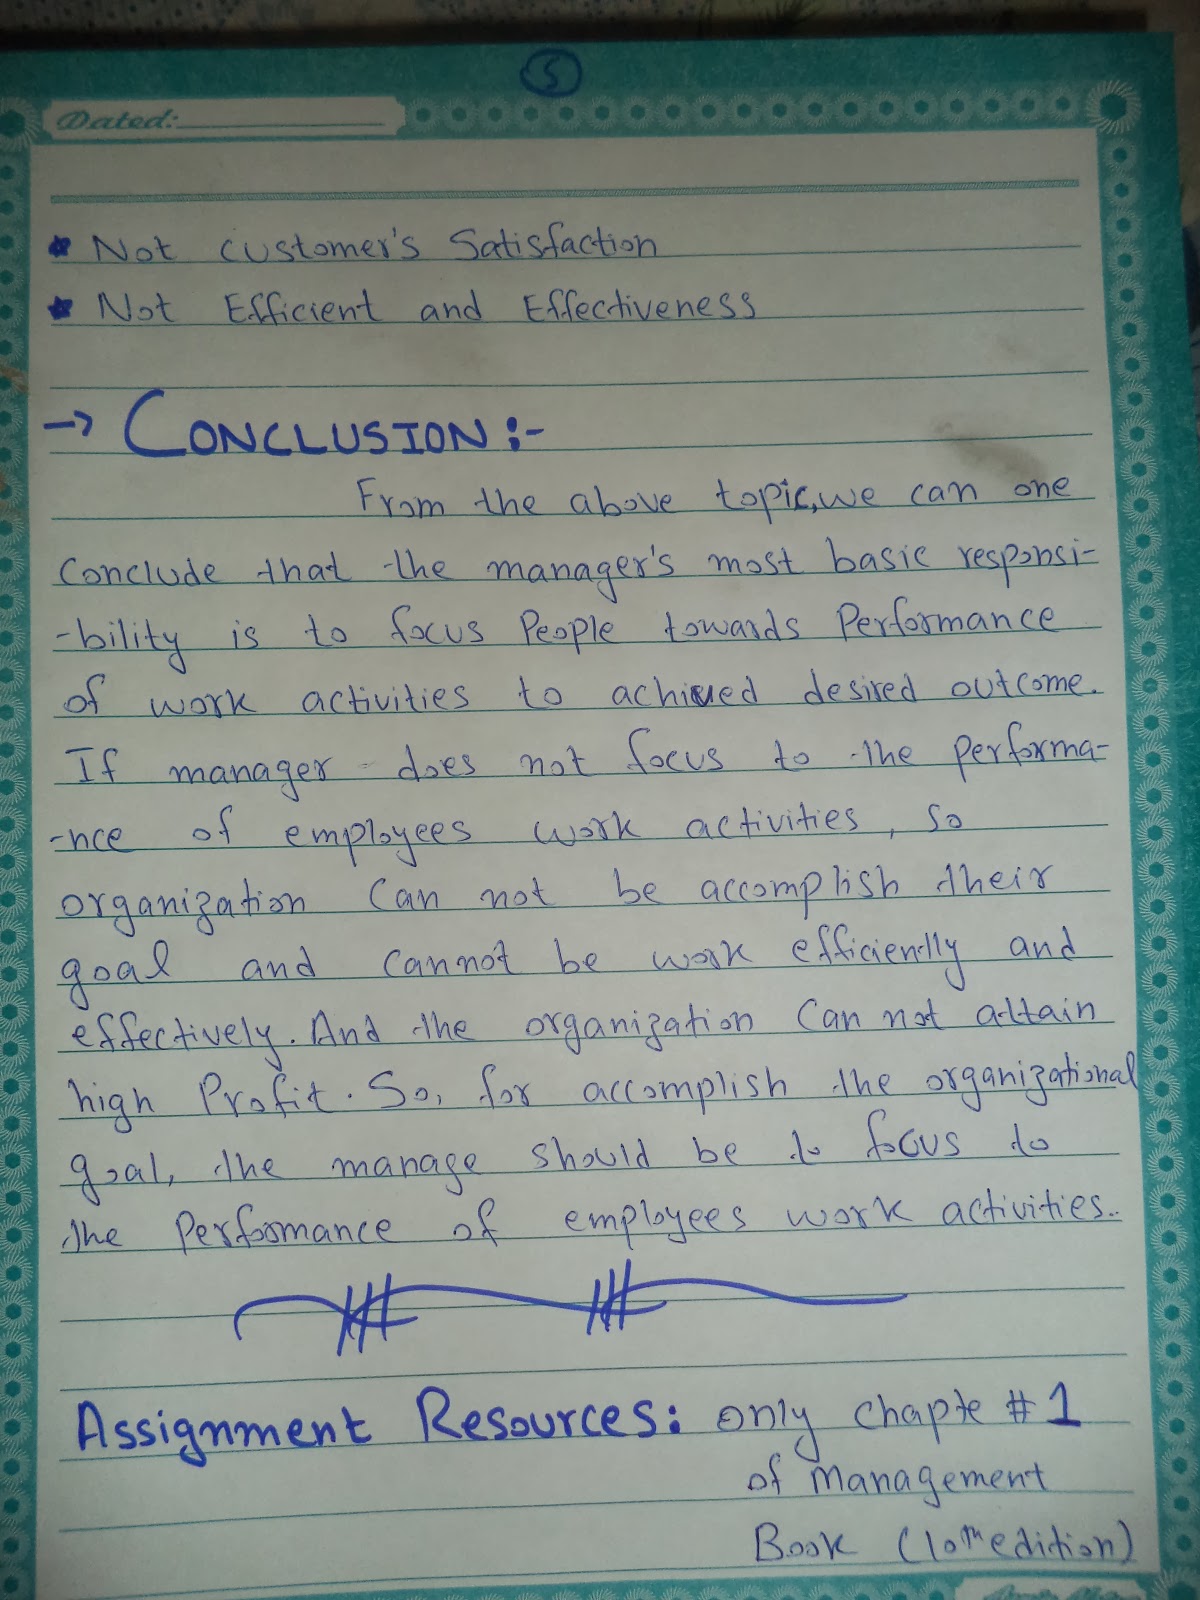 5
Dated:
★ Not customer's Satisfaction
★ Not Efficient and Effectiveness
→ CONCLUSION :-
From the above topic, we can one
Conclude that the manager's most basic responsi-
-bility is to focus People towards Performance
of work activities to achived desired outcome.
If manager does not focus to the performa-
-nce of employees work activities, so
organization Can not be accomplish their
goal and cannot be work efficiently and
effectively. And the organization Can not attain
high Profit. So, for accomplish the organizational
goal, the manage should be to focus to
the Performance of employees work activities..
Assignment Resources: only chapte # 1
of Management
Book (10th edition)